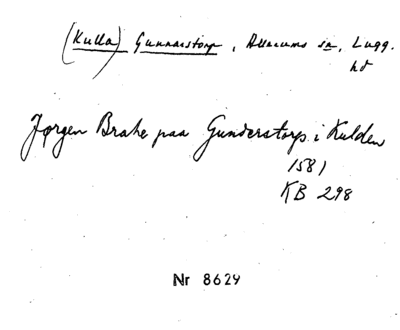 (Kulla) Gunnarstorp, Allerums sn, Lugg.
hd
Jørgen Brahe paa Gunderstorp i Kulden
1581
KB 298
Nr 8629